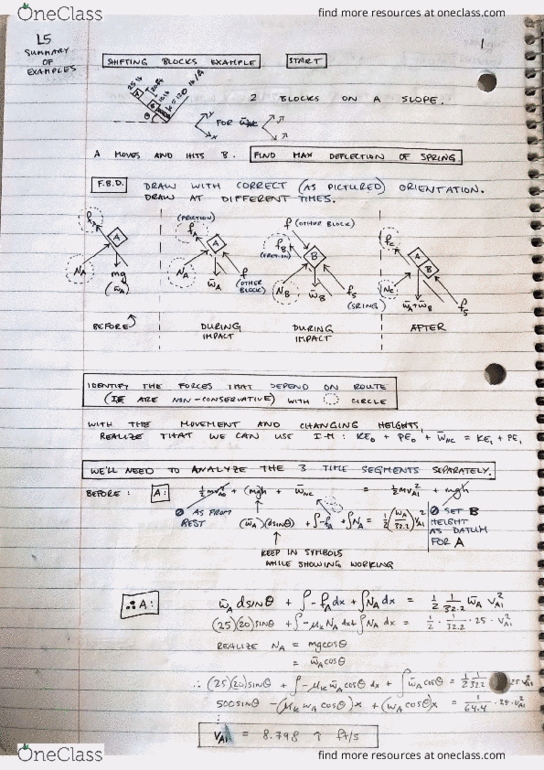 OneClass
find more resources at oneclass.com
L5
SUMMARY
OF
EXAMPLES
1
SHIFTING BLOCKS EXAMPLE
START
25 lb
A
B
θ
2 BLOCKS ON A SLOPE.
FOR
A MOVES AND HITS B. FIND MAX DEFLECTION OF SPRING
F.B.D. DRAW WITH CORRECT (AS PICTURED) ORIENTATION.
DRAW AT DIFFERENT TIMES.
A
N_A
mg
(w̄_A)
BEFORE
(FRICTION)
f_A
A
N_A
w̄_A
f
(OTHER
BLOCK)
DURING
IMPACT
f (OTHER BLOCK)
f_B
B
N_B
w̄_B
f_s
DURING
IMPACT
A
B
w̄_A+w̄_B
f_s
AFTER
IDENTIFY THE FORCES THAT DEPEND ON ROUTE
(IE ARE NON-CONSERVATIVE) WITH CIRCLE
WITH THE MOVEMENT AND CHANGING HEIGHTS,
REALIZE THAT WE CAN USE : KE₀ + PE₀ + W̄_NC = KE₁ + PE₁
WE'LL NEED TO ANALYZE THE 3 TIME SEGMENTS SEPARATELY.
BEFORE : A: ½mv²_A0 + (mgh + W̄_NC = ½mv²_A1 + mgh
0 AS FROM
REST
(w̄_A)(dsinθ) + ∫-f_A + ∫N_A = ½(w_A/32.2)v²_A1
0 SET B
HEIGHT
AS DATUM
FOR A
KEEP IN SYMBOLS
WHILE SHOWING WORKING
∴ A: w̄_A dsinθ + ∫-f_A dx + ∫N_A dx = ½ 1/32.2 w̄_A v²_A1
(25)(20)sinθ + ∫-μ_K N_A dx + ∫N_A dx = ½ · 1/32.2 · 25 · v²_A1
REALIZE N_A = mgcosθ
= w̄_A cosθ
∴ (25)(20)sinθ + ∫-μ_K w̄_A cosθ dx + ∫w̄_A cosθ = ½ 1/32.2 25 v²_A1
500sinθ - (μ_K w_A cosθ)x + (w_A cosθ)x = 1/64.4 · 25 · v²_A1
v_A1 = 8.798 ft/s
OneClass
find more resources at oneclass.com